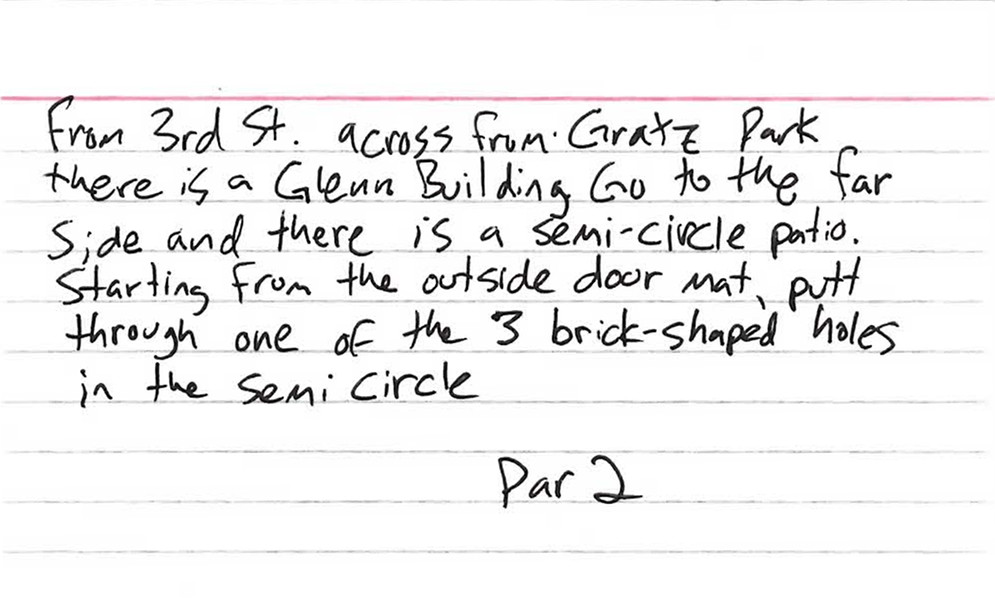 From 3rd St. across from Gratz Park
there is a Glenn Building Go to the far
Side and there is a semi-circle patio.
Starting from the outside door mat, putt
through one of the 3 brick-shaped holes
in the semi circle
Par 2